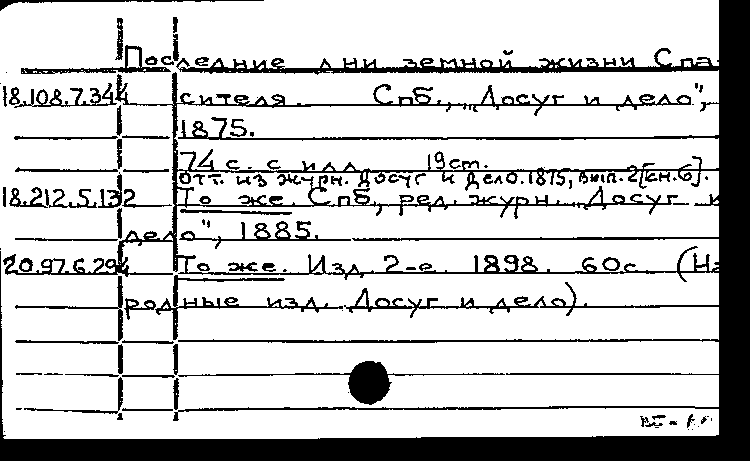 Последние дни земной жизни Спа-
18.108.7.344 сителя. Спб., „Досуг и дело",
1875.
74 с. с илл. 19 cm.
Отт. из журн. Досуг и дело. 1875, вып. 2 [кн. 6].
18.212.5.132 То же. Спб., ред. журн. „Досуг и
дело", 1885.
20.97.6.294 То же. Изд. 2-е. 1898. 60 с. (На
родные изд. Досуг и дело).